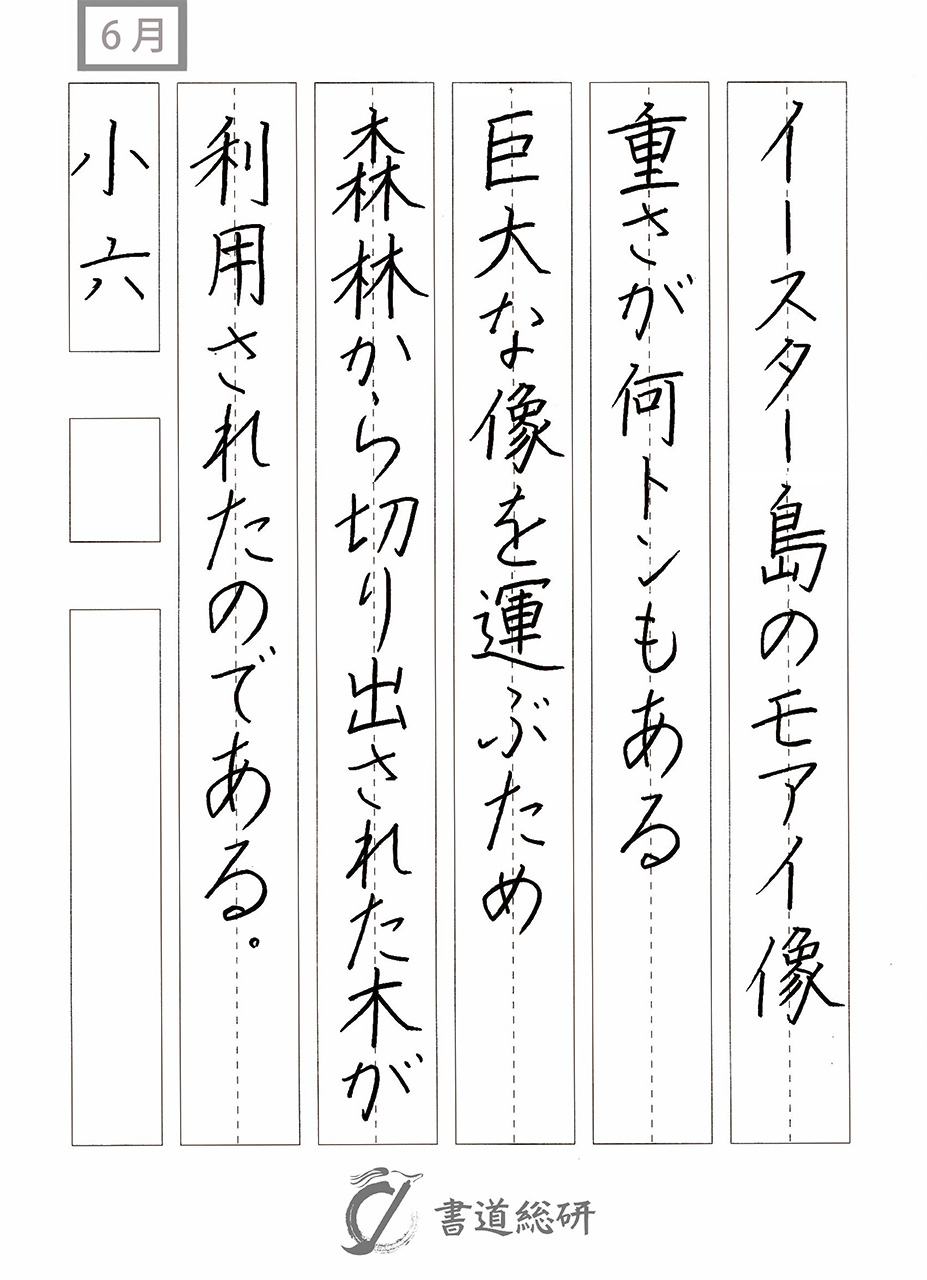 6月
イースター島のモアイ像
重さが何トンもある
巨大な像を運ぶため
森林から切り出された木が
利用されたのである。
小六
書道総研